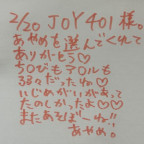 2/20 JOY401様。
あやめを選んでくれて
ありがとう♡
ちくびもアロルも
るるだったね♡
いじめがいがあって
たのしかったよ♡♡
またあそぼーね!!
あやめ。